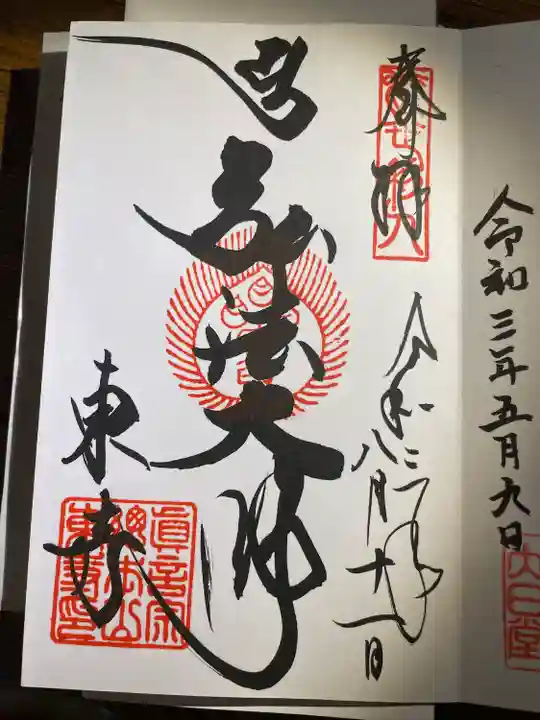 令和三年五月九日
大日堂
奉拝
令和三年
八月十一日
弘法大師
東寺
真言宗
總本山
東寺印